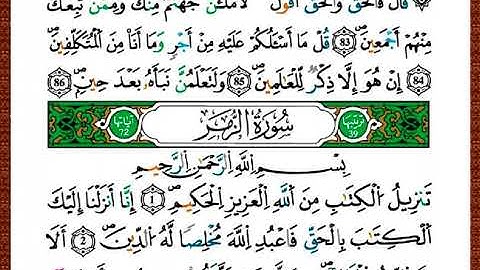 قَالَ فَالْحَقُّ وَالْحَقَّ أَقُولُ لَأَمْلَأَنَّ جَهَنَّمَ مِنكَ وَمِمَّن تَبِعَكَ
مِنْهُمْ أَجْمَعِينَ 83 قُلْ مَا أَسْئَلُكُمْ عَلَيْهِ مِنْ أَجْرٍ وَمَا أَنَا مِنَ اَلْمُتَكَلِّفِينَ
84 إِنْ هُوَ إِلَّا ذِكْرٌ لِّلْعَالَمِينَ 85 وَلَتَعْلَمُنَّ نَبَأَهُ بَعْدَ حِينٍ 86
ترتيبها 39 سُورَةُ الزُّمَرِ آياتها 72
بِسْمِ اِللَّهِ اِلرَّحْمَٰنِ اِلرَّحِيمِ
تَنزِيلُ اُلْكِتَٰبِ مِنَ اَللَّهِ اِلْعَزِيزِ اِلْحَكِيمِ 1 إِنَّا أَنزَلْنَا إِلَيْكَ
اَلْكِتَٰبَ بِالْحَقِّ فَاعْبُدِ اِللَّهَ مُخْلِصًا لَّهُ اُلدِّينَ 2 أَلَا